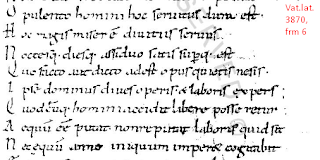 Opulento homini hoc servitus dura est.
Hoc magis miser ē divitis servus.
Noctesq; diesq; assiduo satis supq; est
Quo facto aut dicto adest opus quietus nesis.
Ipse dominus dives operis & laboris expers;
Quodcūq; homini accidit libere posse retur;
Aequū eē putat non reputat laboris quid sit
Nec equū anne iniquum imper& cogitabit
Vat.lat.
3870,
frm 6